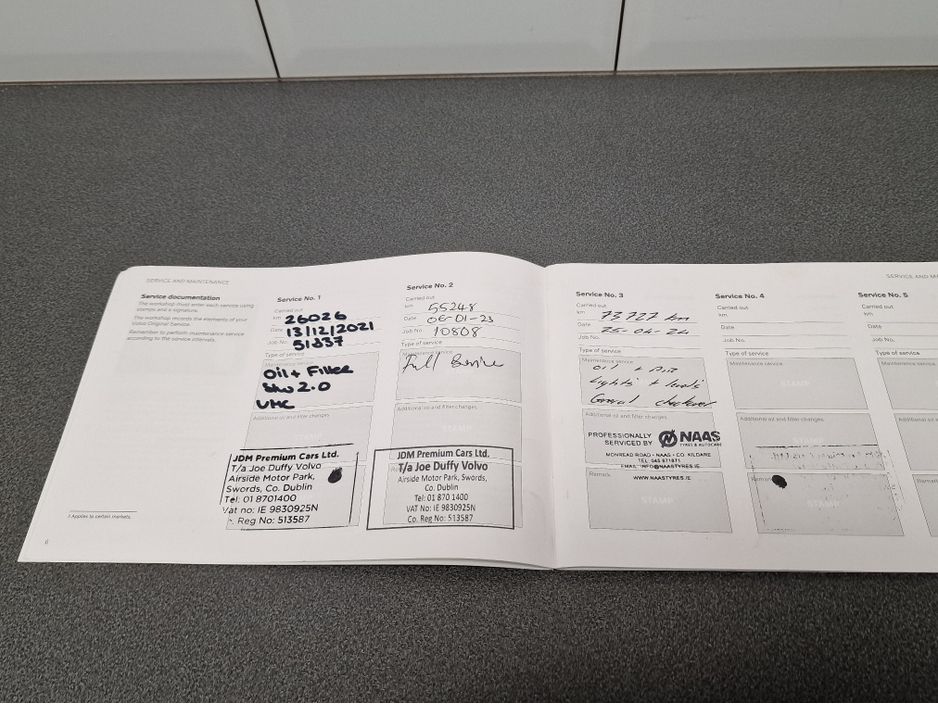 SERVICE AND MAINTENANCE
Service documentation
The workshop must enter each service using
stamps and a signature.
The workshop records the elements of your
Volvo Original Service.
Remember to perform maintenance service
according to the service intervals.
1 Applies to certain markets.
6
Service No. 1
Carried out
km 26026
Date 13/12/2021
Job No. 51837
Type of service
Maintenance service
Oil + Filter
VHC
Additional oil and filter changes
STAMP
JDM Premium Cars Ltd.
T/a Joe Duffy Volvo
Airside Motor Park,
Swords, Co. Dublin
Tel: 01 8701400
Vat no: IE 9830925N
Reg No: 513587
Service No. 2
Carried out
km 55248
Date 06-01-23
Job No. 10808
Type of service
Full Service
Additional oil and filter changes
STAMP
JDM Premium Cars Ltd.
T/a Joe Duffy Volvo
Airside Motor Park, Swords,
Co. Dublin
Tel: 01 870 1400
VAT No: IE 9830925N
Co. Reg No: 513587
SERVICE AND
Service No. 3
Carried out
km 73727 km
Date 25-04-24
Job No.
Type of service
Maintenance service
Oil +
Lights + levels
General checkover
Additional oil and filter changes
PROFESSIONALLY
SERVICED BY
NAAS
TYRES & AUTOCARE
MONREAD ROAD • NAAS • CO. KILDARE
TEL: 045 871871
EMAIL: INFO@NAASTYRES.IE
WWW.NAASTYRES.IE
Remark
STAMP
Service No. 4
Carried out
km
Date
Job No.
Type of service
Maintenance service
STAMP
Additional oil and filter changes
STAMP
Remark
STAMP
Service No. 5
Carried out
km
Date
Job No.
Type of service
Maintenance service
Additional oil
Remark